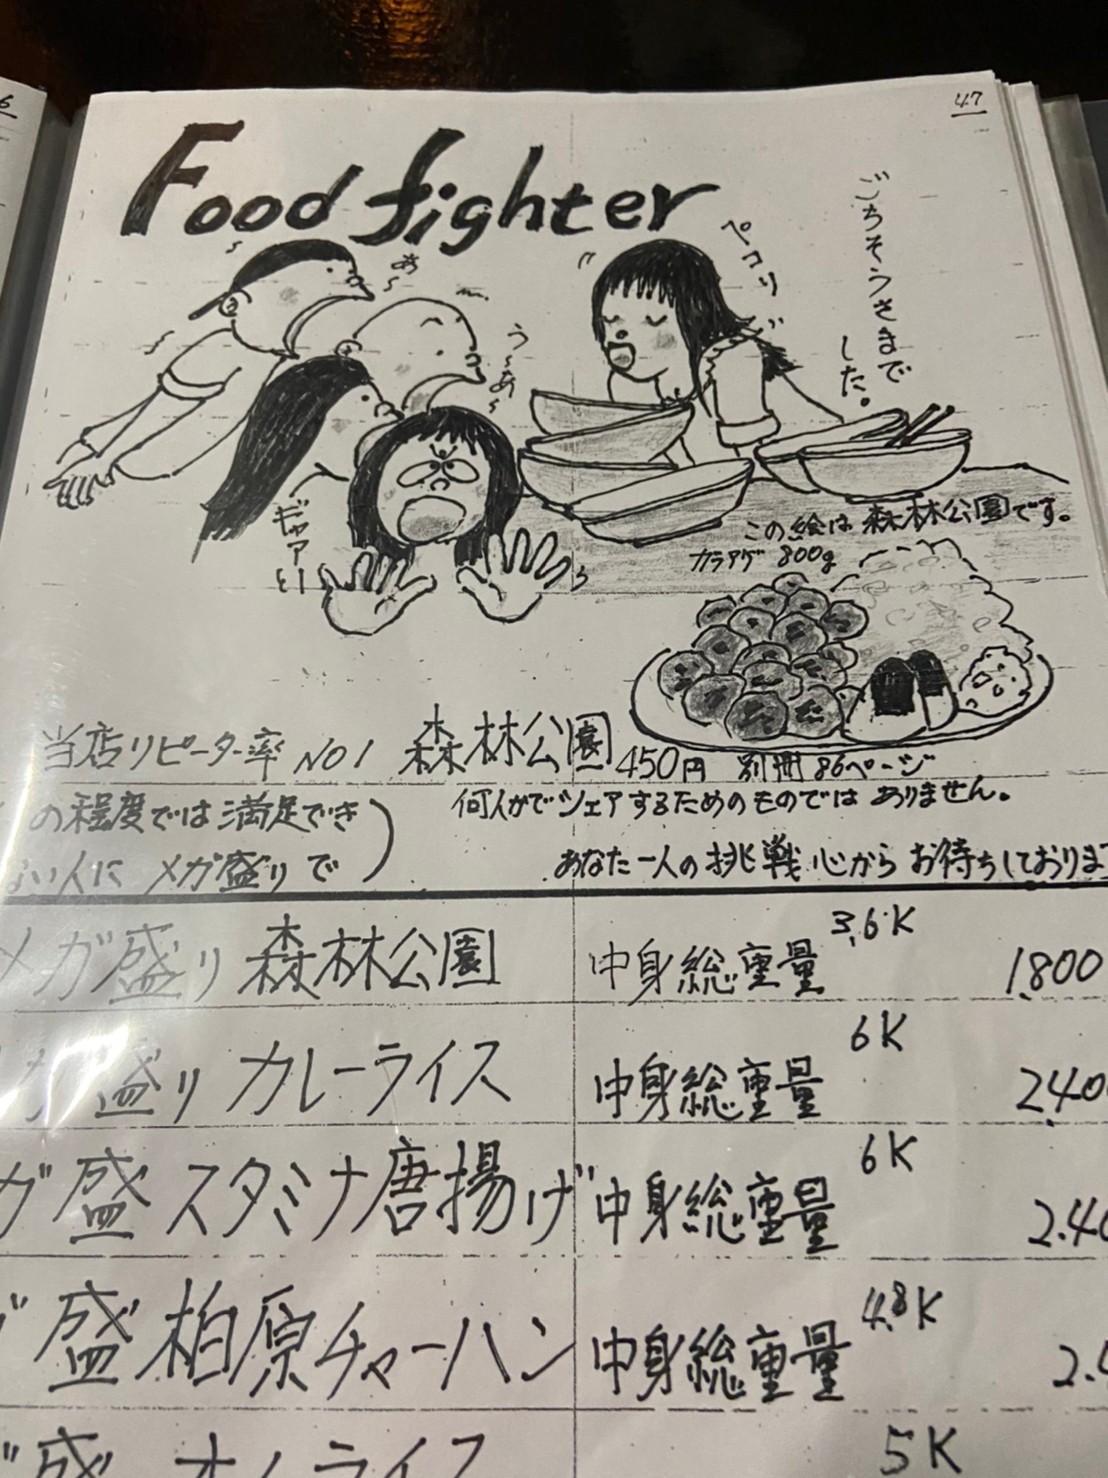 47
Food fighter
ごちそうさまで
した。
ペコリ
あ〜
う〜あ〜
ギャアー
この絵は森林公園です。
カラアゲ 800g
当店リピーター率 NO1 森林公園 450円 別冊86ページ
の程度では満足でき
ない人に メガ盛りで
何人かでシェアするためのものではありません。
あなた一人の挑戦心からお待ちしておりま
メガ盛り 森林公園 中身総重量 3.6K 1.800
ガ盛り カレーライス 中身総重量 6K 2.40
ガ盛 スタミナ唐揚げ 中身総重量 6K 2.40
盛 柏原チャーハン 中身総重量 4.8K 2.
盛 オムライス 5K